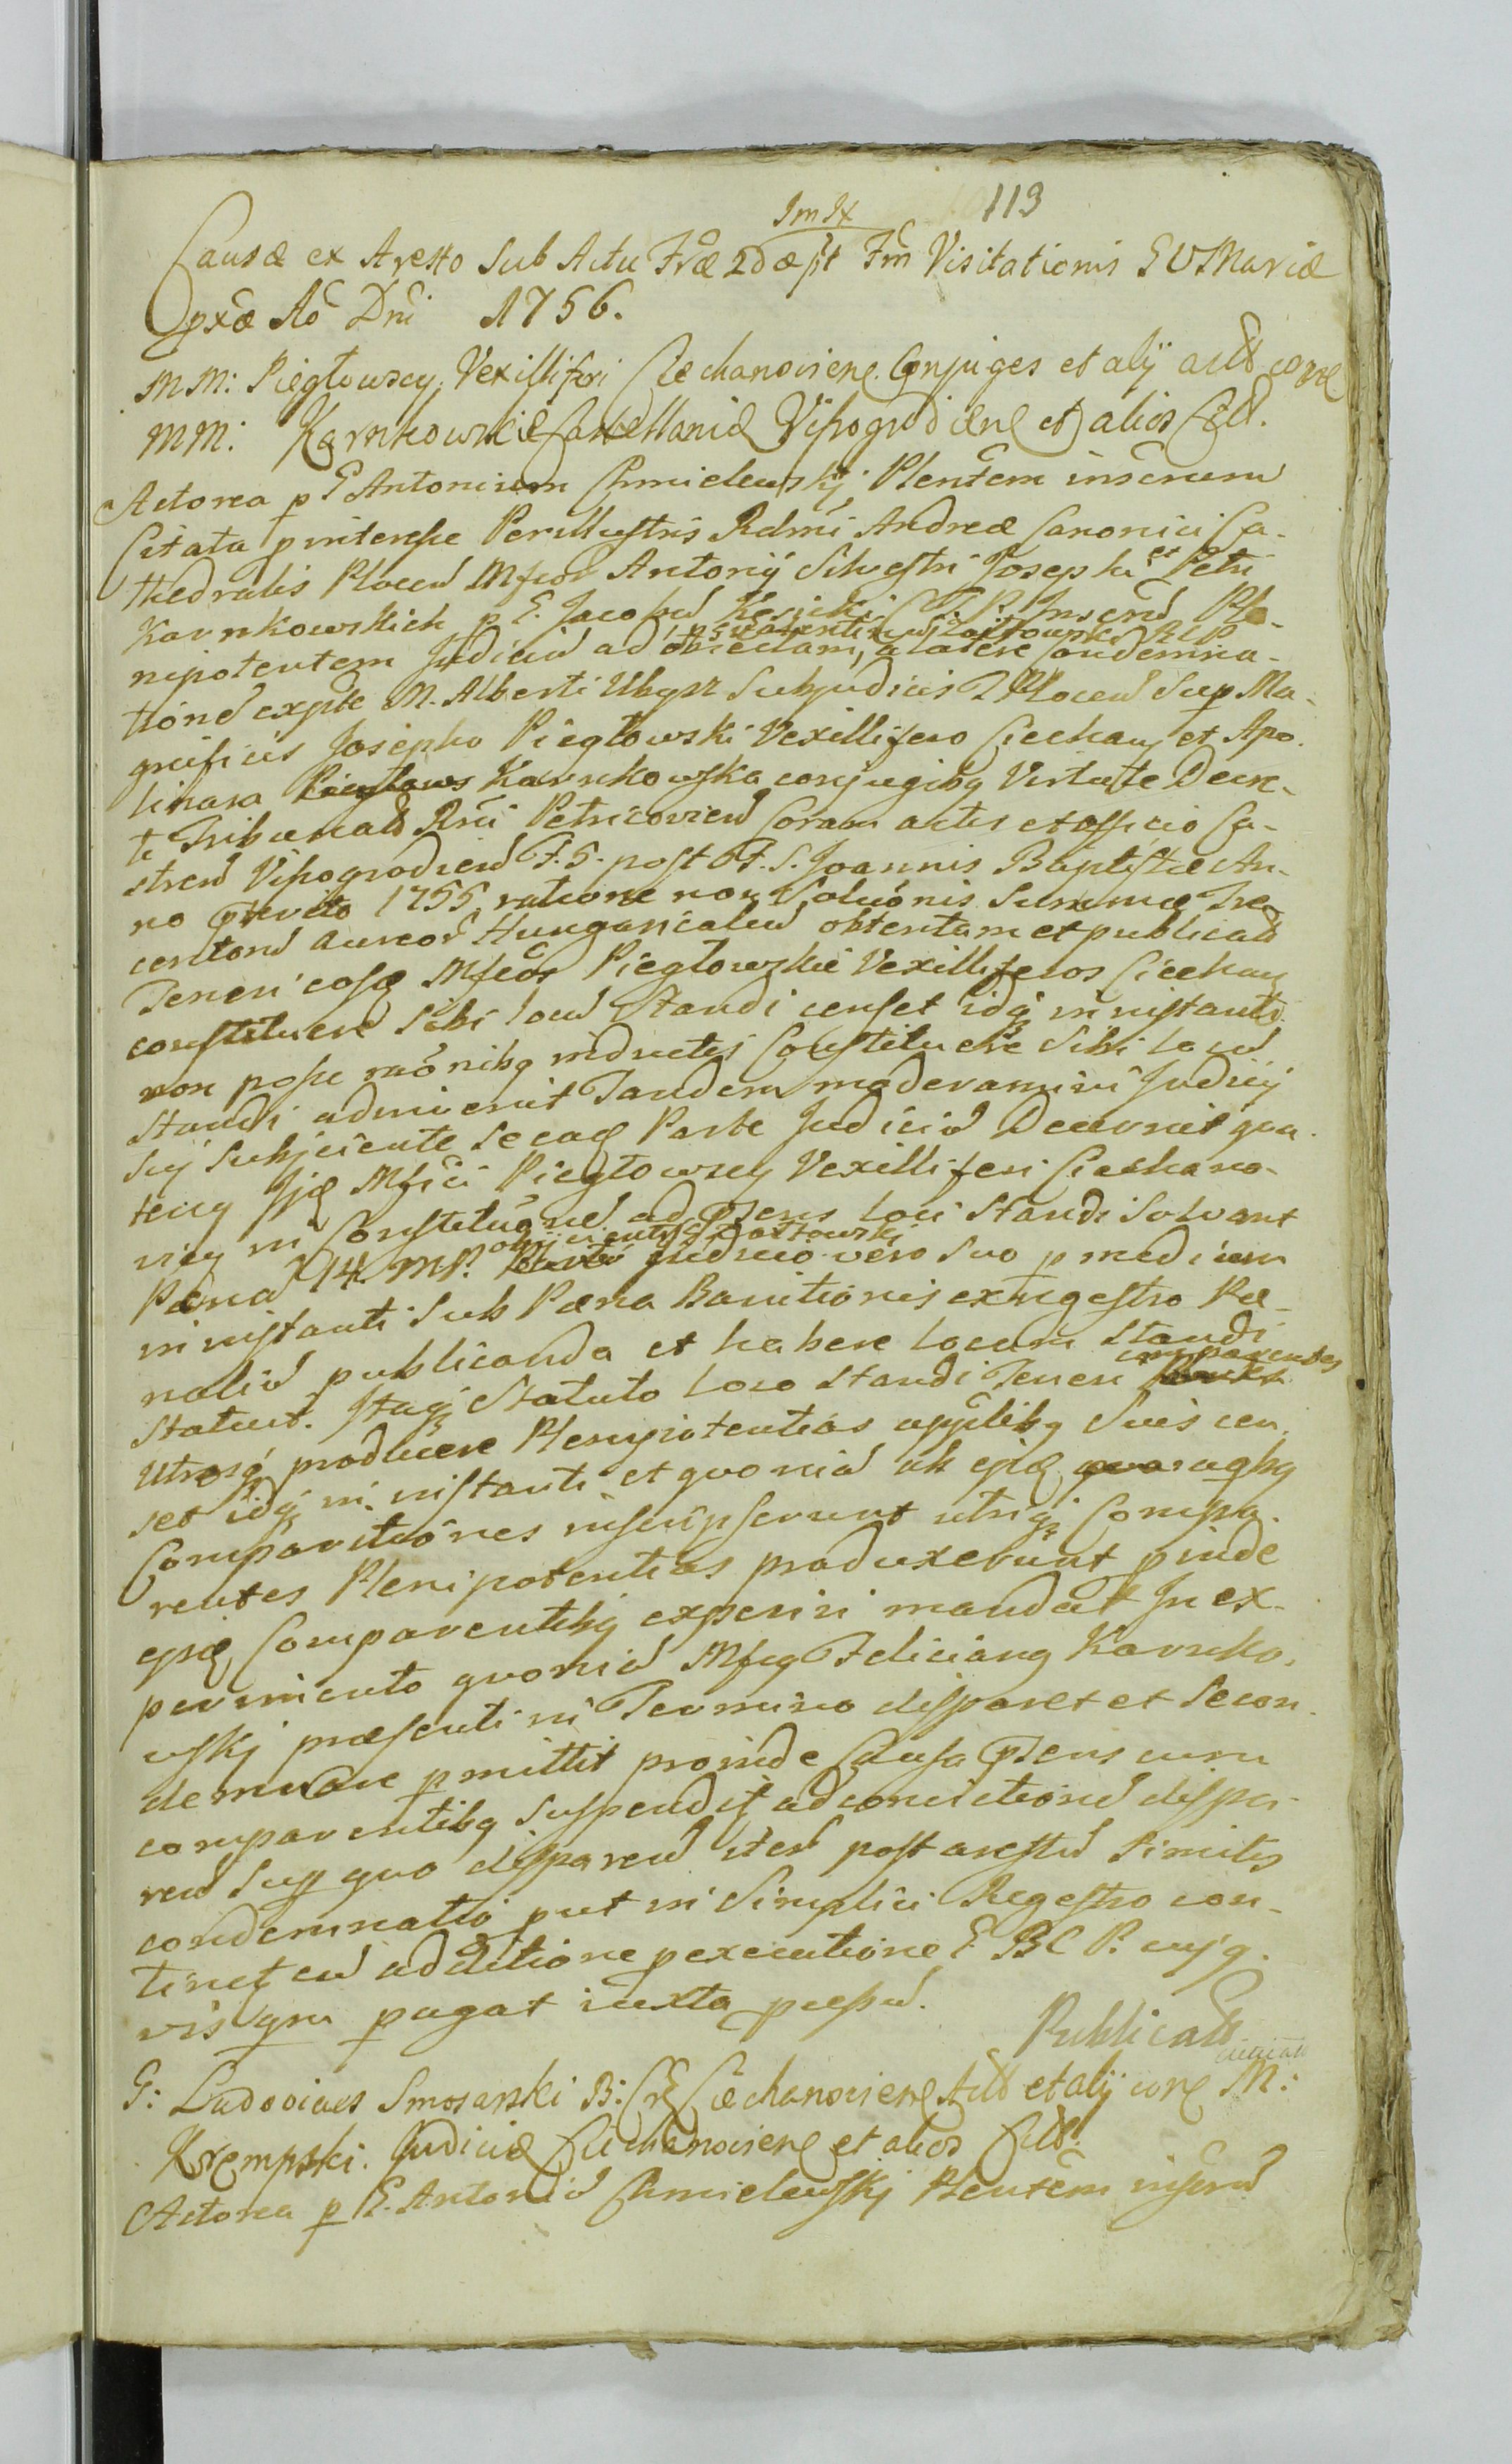 Im IX 113
Causæ ex Aresto Sub Actu Fræ 2dæ pt Fm Visitationis S V Mariæ
pxæ Ao Dni 1756.
MM: Piegłowscy, Vexilliferi Ciechanovien. Conjuges et alij actt cone
MM: Karnkowskie Castellanid Viszogrodien et alios Citt.
Actorea p G Antonium Chmielewskij Plentem inscrum
Citata pnteresse Perillustris Rdmi Andreæ Canonici Ca-
thedralis Plocen Mfcor Antonij Silvestri Josephi et Petri
Karnkowskich p G. Jacobu Kęsicki C. T. P. Inscru Ple-
nipotentem Judiciu ad objectam, a latere Condemna-
tione exprte M. Alberti Ubysz Subjudicis T Plocen Sup Ma-
gnificis Josepho Piegłowski Vexillifero Ciechan et Apo-
linara Piegłows Karnkowska conjugibq Virtute Decre-
ti Tribunalis Rni Petricovien Coram actis et officio Ca-
stren Viszogrodien F. 5. post F. S. Joannis Baptistæ An-
no prvto 1755 ratione non Soluonis Summæ Tre-
centoru aureor Hungaricaliu obtentam et publicatt
Teneri eosq Mfcos Piegłowskie Vexilliferos Ciechan
constituere Sibi locu Standi censet idq in instanti
non posse raonibq inductis Constituere Sibi locu
Standi advenerit Tandem moderamini Judicij
Suj Subjiciente Se eaq Parte Judiciu Decernit qua-
tenq Ijdq Mfici Piegłowscy Vexilliferi Ciechano-
vien in Constituone ad prsens loci Standi Solvant
Pænas X14 M.P. objicienti Zołtowski Judicio vero Suo p medium
in instanti Sub Pæna Banitionis ex regestro Pæ-
naliu publicanda et habere locum Standi
Statuit. Itaq Statuto loco Standi Teneri comparentes
Utrosq producere Plenipotentias appelibq Suis cen-
set idq in instanti et quoniad ab ejsd quaruqbq
Comparitiones inscripserunt utriq Compa-
rentes Plenipotentias produxerunt pinde
ejsd Comparentibq experiri mandat In ex-
perimento quoniad Mfcq Felicianq Karnko-
wskj præsenti in Termino disparet et Secon-
demnare pmittit proinde Causa prsens cum
comparentibq Suspendit ad convictioned dispa-
ren Sup quo disparen iter post arestu Similis
condemnatio put in Simplici Regestro con-
tinet cu additione p executione G. B C P. cujq-
vis gru pagat iuxta pressu.
Publicatt
G: Ludovicus Smosarski B: C Ciechanovien Actt et alij cone M:
Krempski Judicid Ciechanovien et alios Citt.
Actorea p G. Antoniu Chmielewskj Plentem inscru